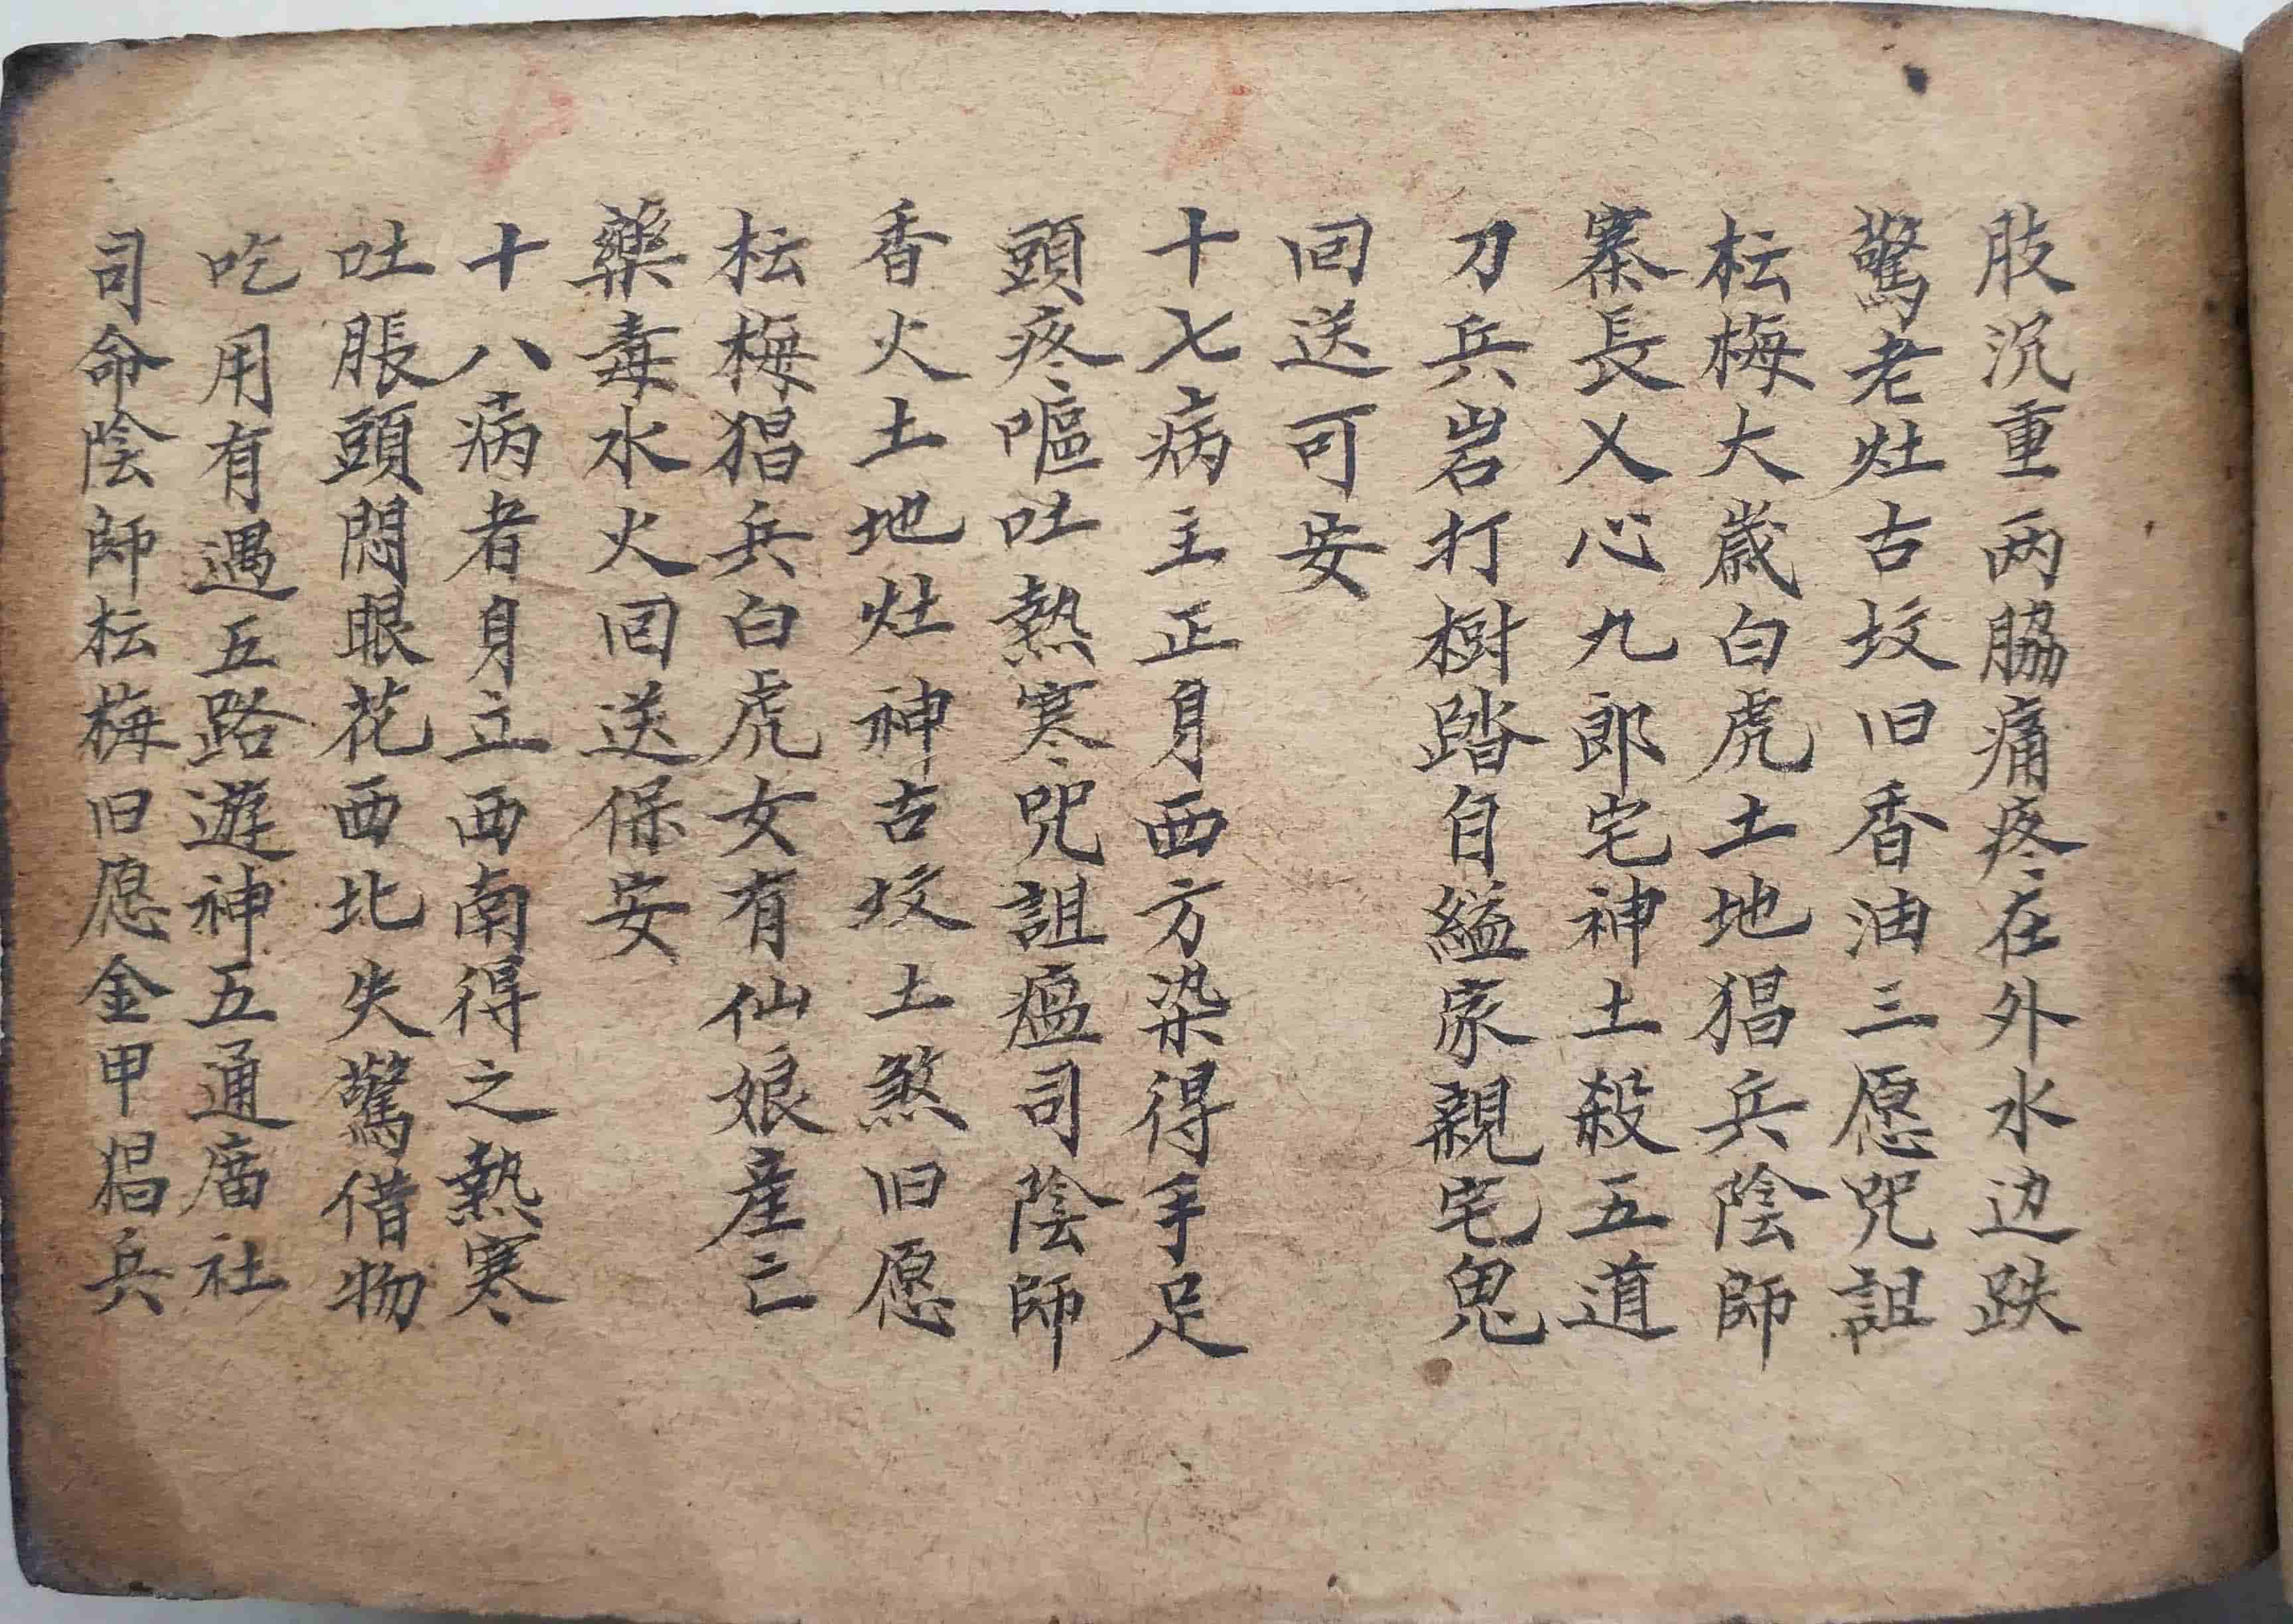 肢沉重两脇痛疼在外水边跌
驚老灶古坟旧香油三愿咒詛
枟梅大歲白虎土地猖兵陰師
寨長乂心九郎宅神土殺五道
刀兵岩打樹踏自縊家親宅鬼
回送可安
十七病主正身西方染得手足
頭疼嘔吐熱寒咒詛瘟司陰師
香火土地灶神古坟土煞旧愿
枟梅猖兵白虎女有仙娘産亡
藥毒水火回送保安
十八病者身立西南得之熱寒
吐脹頭悶眼花西北失驚借物
吃用有遇五路遊神五通庙社
司命陰師枟梅旧愿金甲猖兵